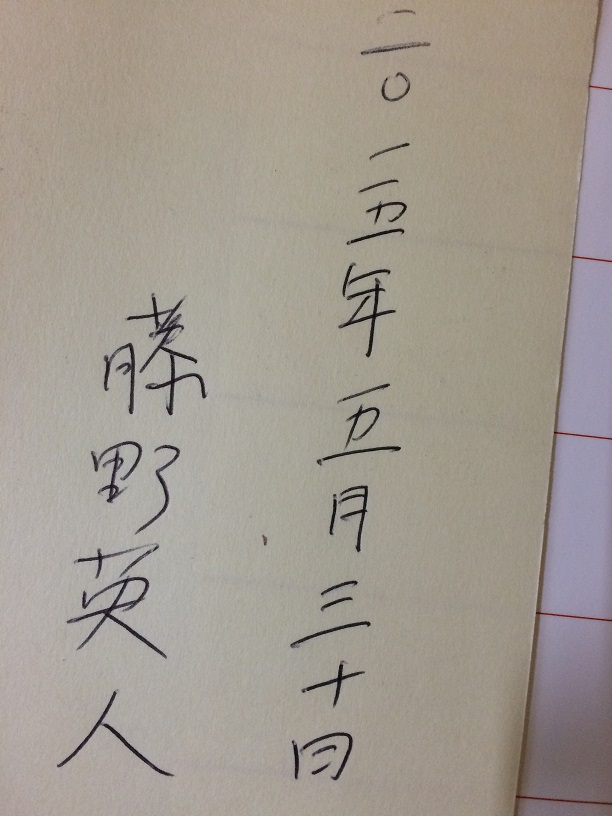 二〇一五年五月三十日
藤野英人